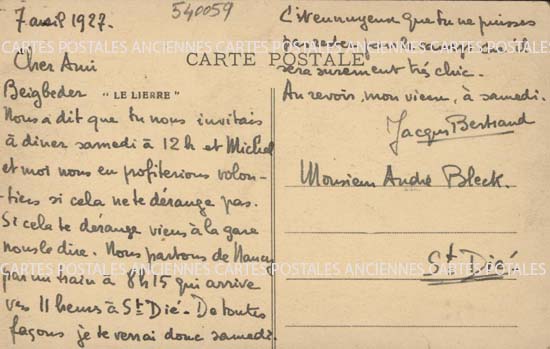 7 avril 1927.
540059
Cher Ami
CARTE POSTALE
Beigbeder "LE LIERRE"
Nous a dit que tu nous invitais
à dîner samedi à 12h et Michel
et moi nous en profiterions volon-
tiers si cela ne te dérange pas.
Si cela te dérange viens à la gare
nous le dire. Nous partons de Nancy
par un train à 8h15 qui arrive
vers 11 heures à St Dié. De toutes
façons je te verrai donc samedi.
C'est ennuyeux que tu ne puisses
sera surement très chic.
Au revoir, mon vieux, à samedi.
Jacques Bertrand
Monsieur André Bleck.
St Dié
CARTES POSTALES ANCIENNES CARTES POSTALES ANCIENNES CARTES POSTALES